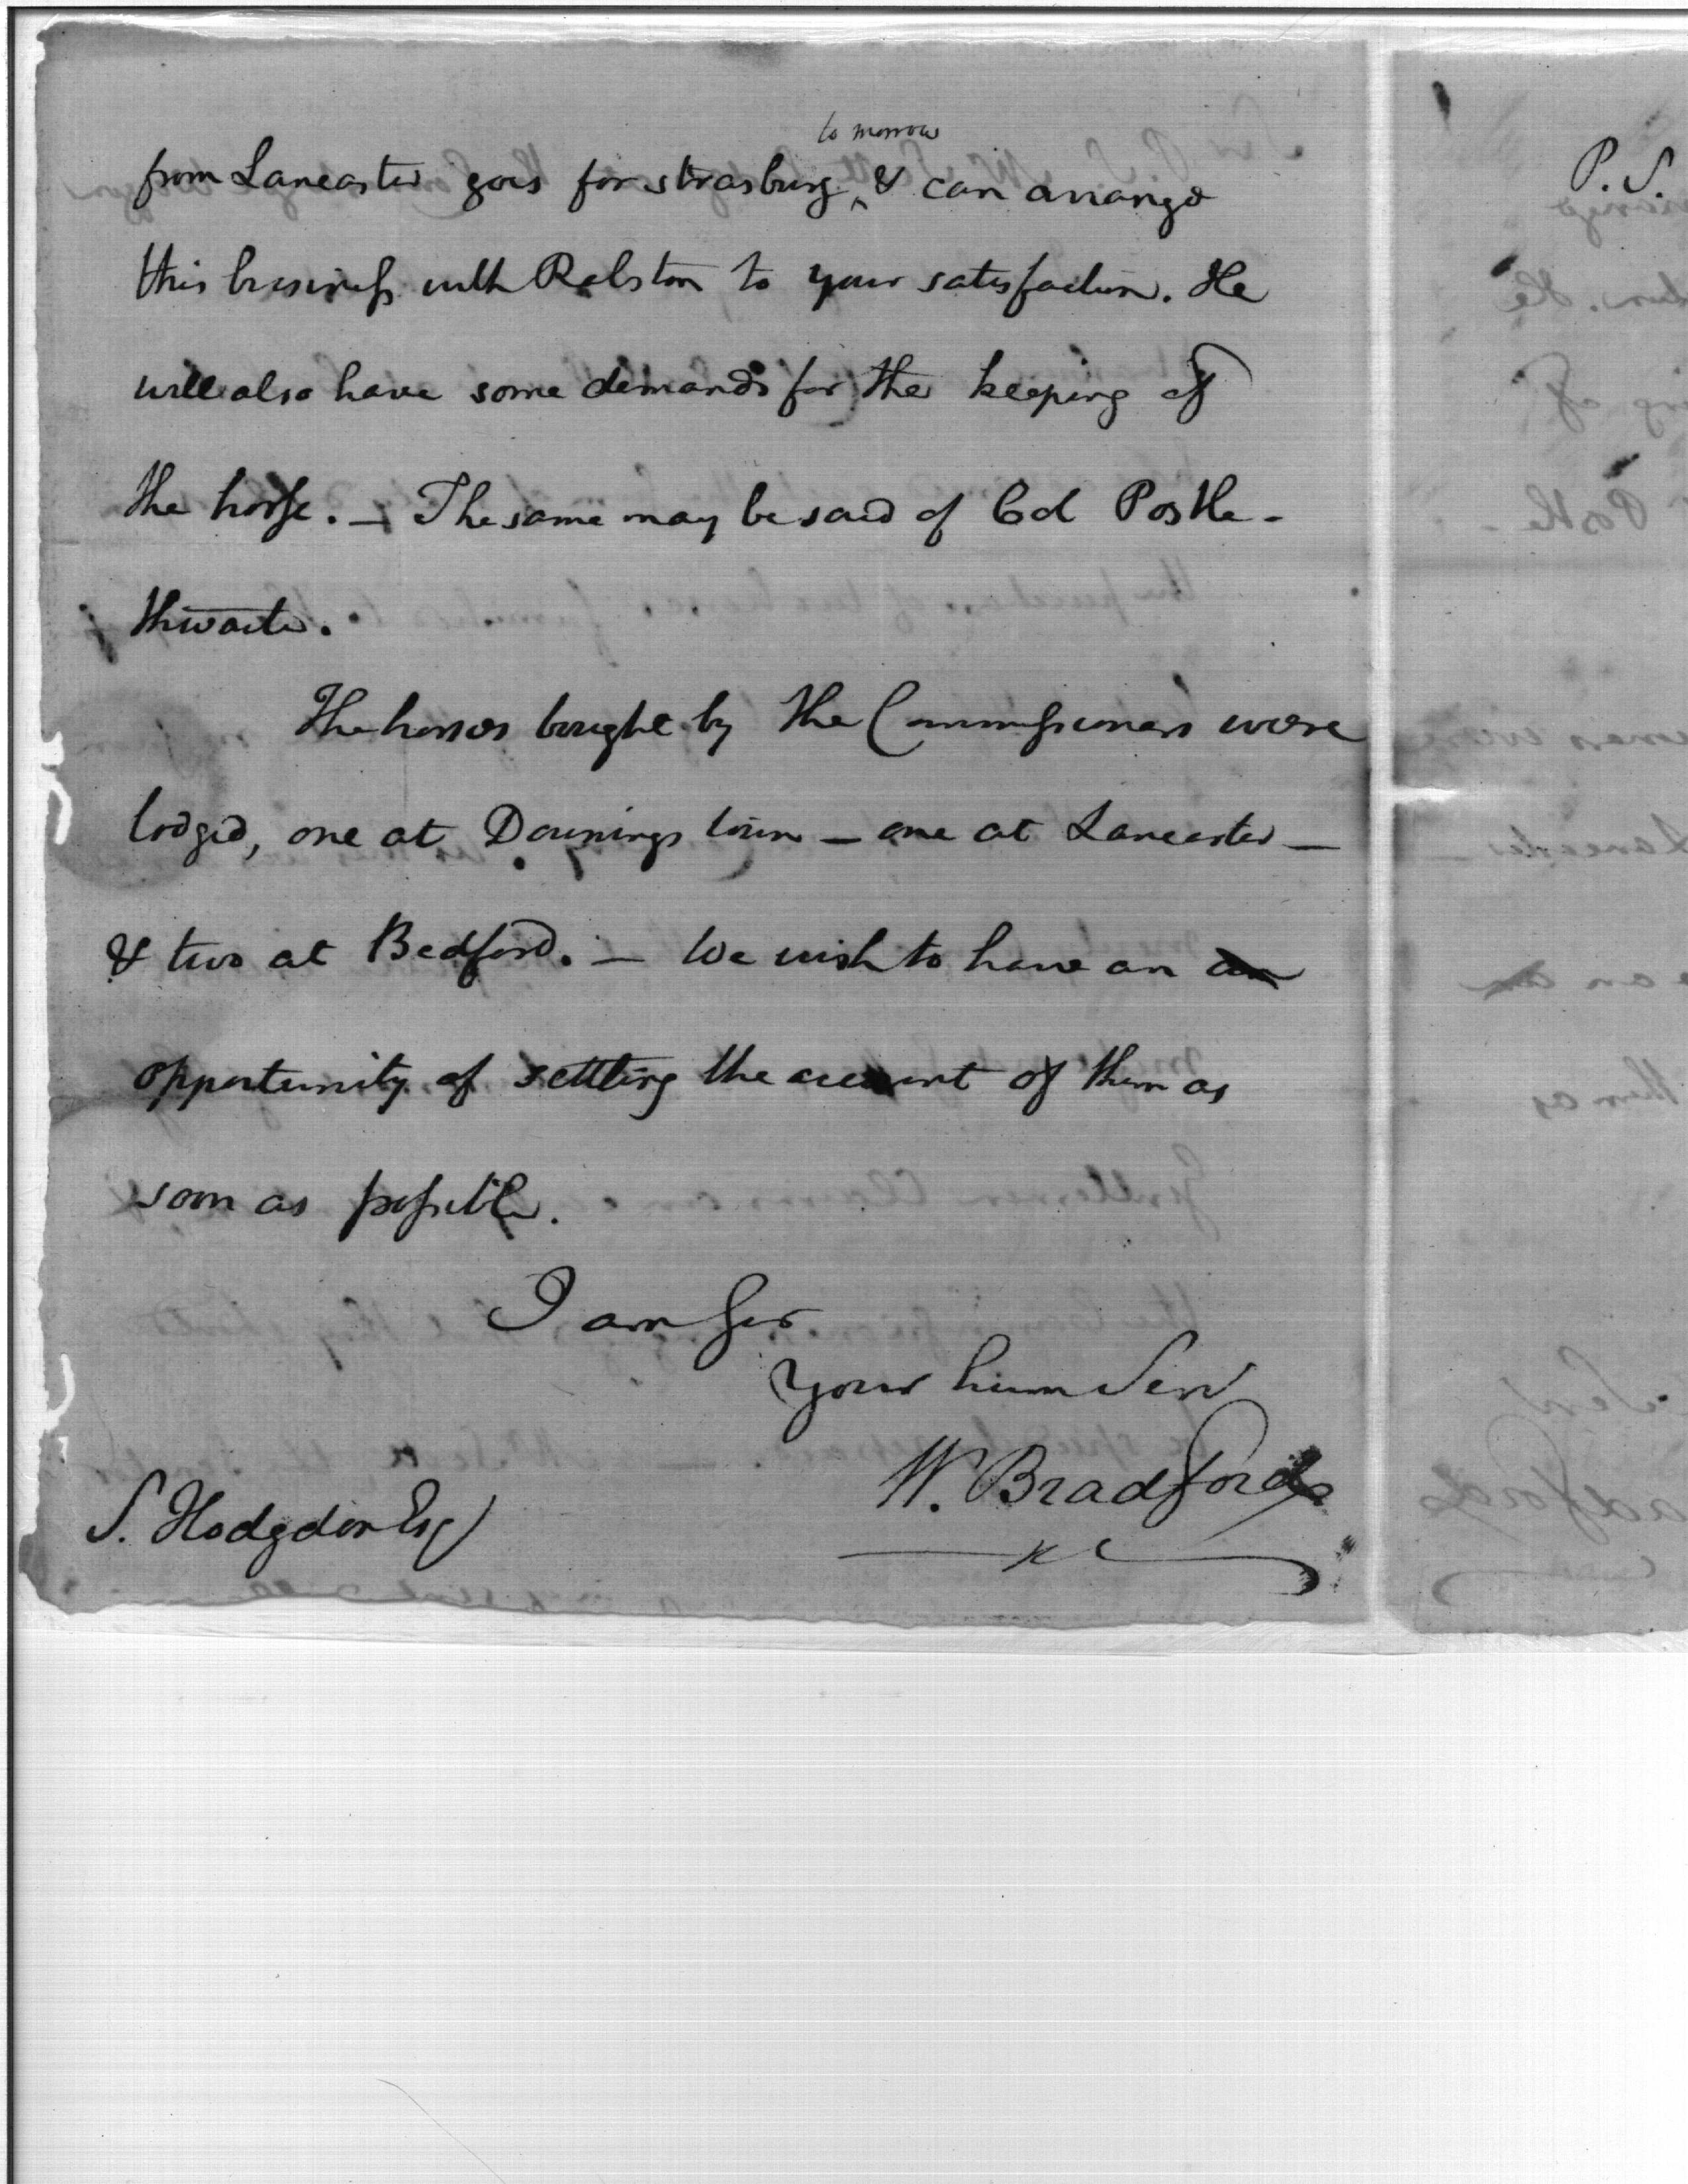 to morrow
from Lancaster goes for strasburg ^ & can arrange
this business with Ralston to your satisfaction. He
will also have some demands for the keeping of
the horse. — The same may be said of Col Postle-
thwaite.
The horses bought by the Commissioners were
lodged, one at Downings town — one at Lancaster —
& two at Bedford. — We wish to have an an
opportunity of settling the account of them as
soon as possible.
I am Sir
Your hum Serv
W. Bradford
S. Hodgdon Esq
P. S.